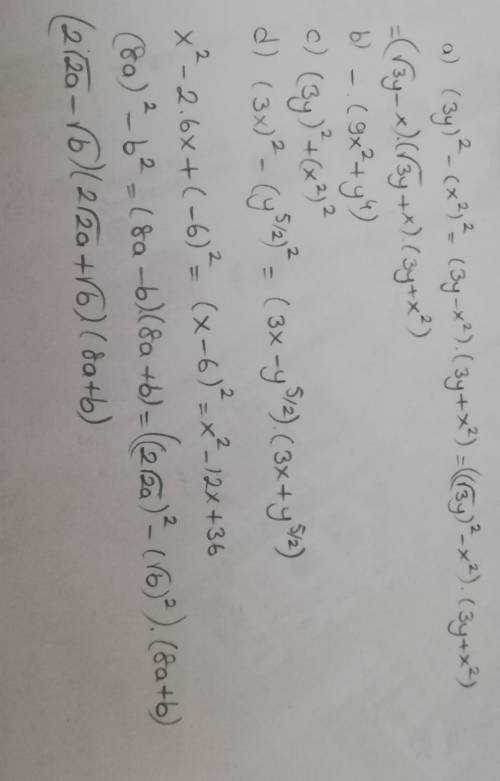 a) (3y)² - (x²)² = (3y-x²).(3y+x²) = ((√3y)²-x²).(3y+x²)
=(√3y-x).(√3y+x).(3y+x²)
b) -.(9x²+y⁴)
c) (3y)²+(x²)²
d) (3x)² - (y^5/2)² = (3x-y^5/2).(3x+y^5/2)
x² - 2.6x + (-6)² = (x-6)² = x² - 12x+36
(8a)² - b² = (8a-b)(8a+b) = ((2√2a)² - (√b)²).(8a+b)
(2√2a-√b)(2√2a+√b)(8a+b)